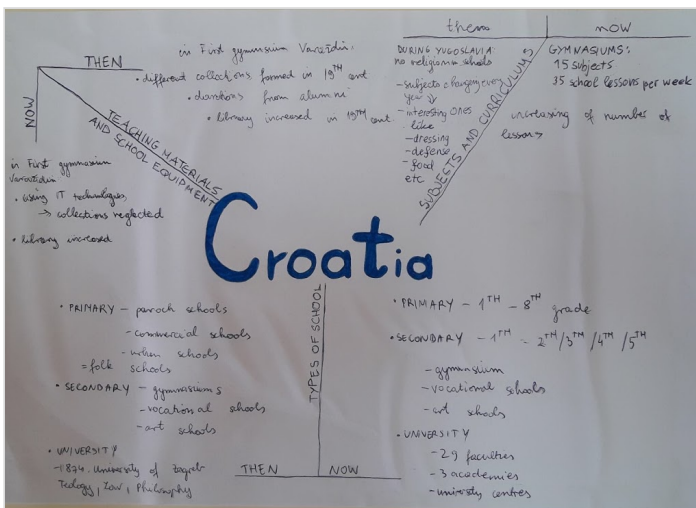 THEN
NOW
TEACHING MATERIALS
AND SCHOOL EQUIPMENT
in First gymnasium Varaždin:
• different collections formed in 19TH cent
• donations from alumni
• library increased in 19TH cent.
in First gymnasium
Varaždin
• using IT technologies,
→ collections neglected
• library increased
then
now
SUBJECTS AND CURRICULUMS
DURING YUGOSLAVIA:
no religion in schools
- subjects changing every
year ↓
- interesting ones
like
- dressing
- defense
- food
etc
GYMNASIUMS:
15 subjects
35 school lessons per week
increasing of number of
lessons
Croatia
TYPES OF SCHOOL
THEN
NOW
• PRIMARY - paroch schools
- commercial schools
- urban schools
= folk schools
• SECONDARY - gymnasiums
- vocational schools
- art schools
• UNIVERSITY
- 1874. University of Zagreb
Teology, Law, Philosophy
• PRIMARY - 1TH - 8TH grade
• SECONDARY - 1TH - 2TH/3TH/4TH/5TH
- gymnasium
- vocational schools
- art schools
• UNIVERSITY
- 29 faculties
- 3 academies
- university centres